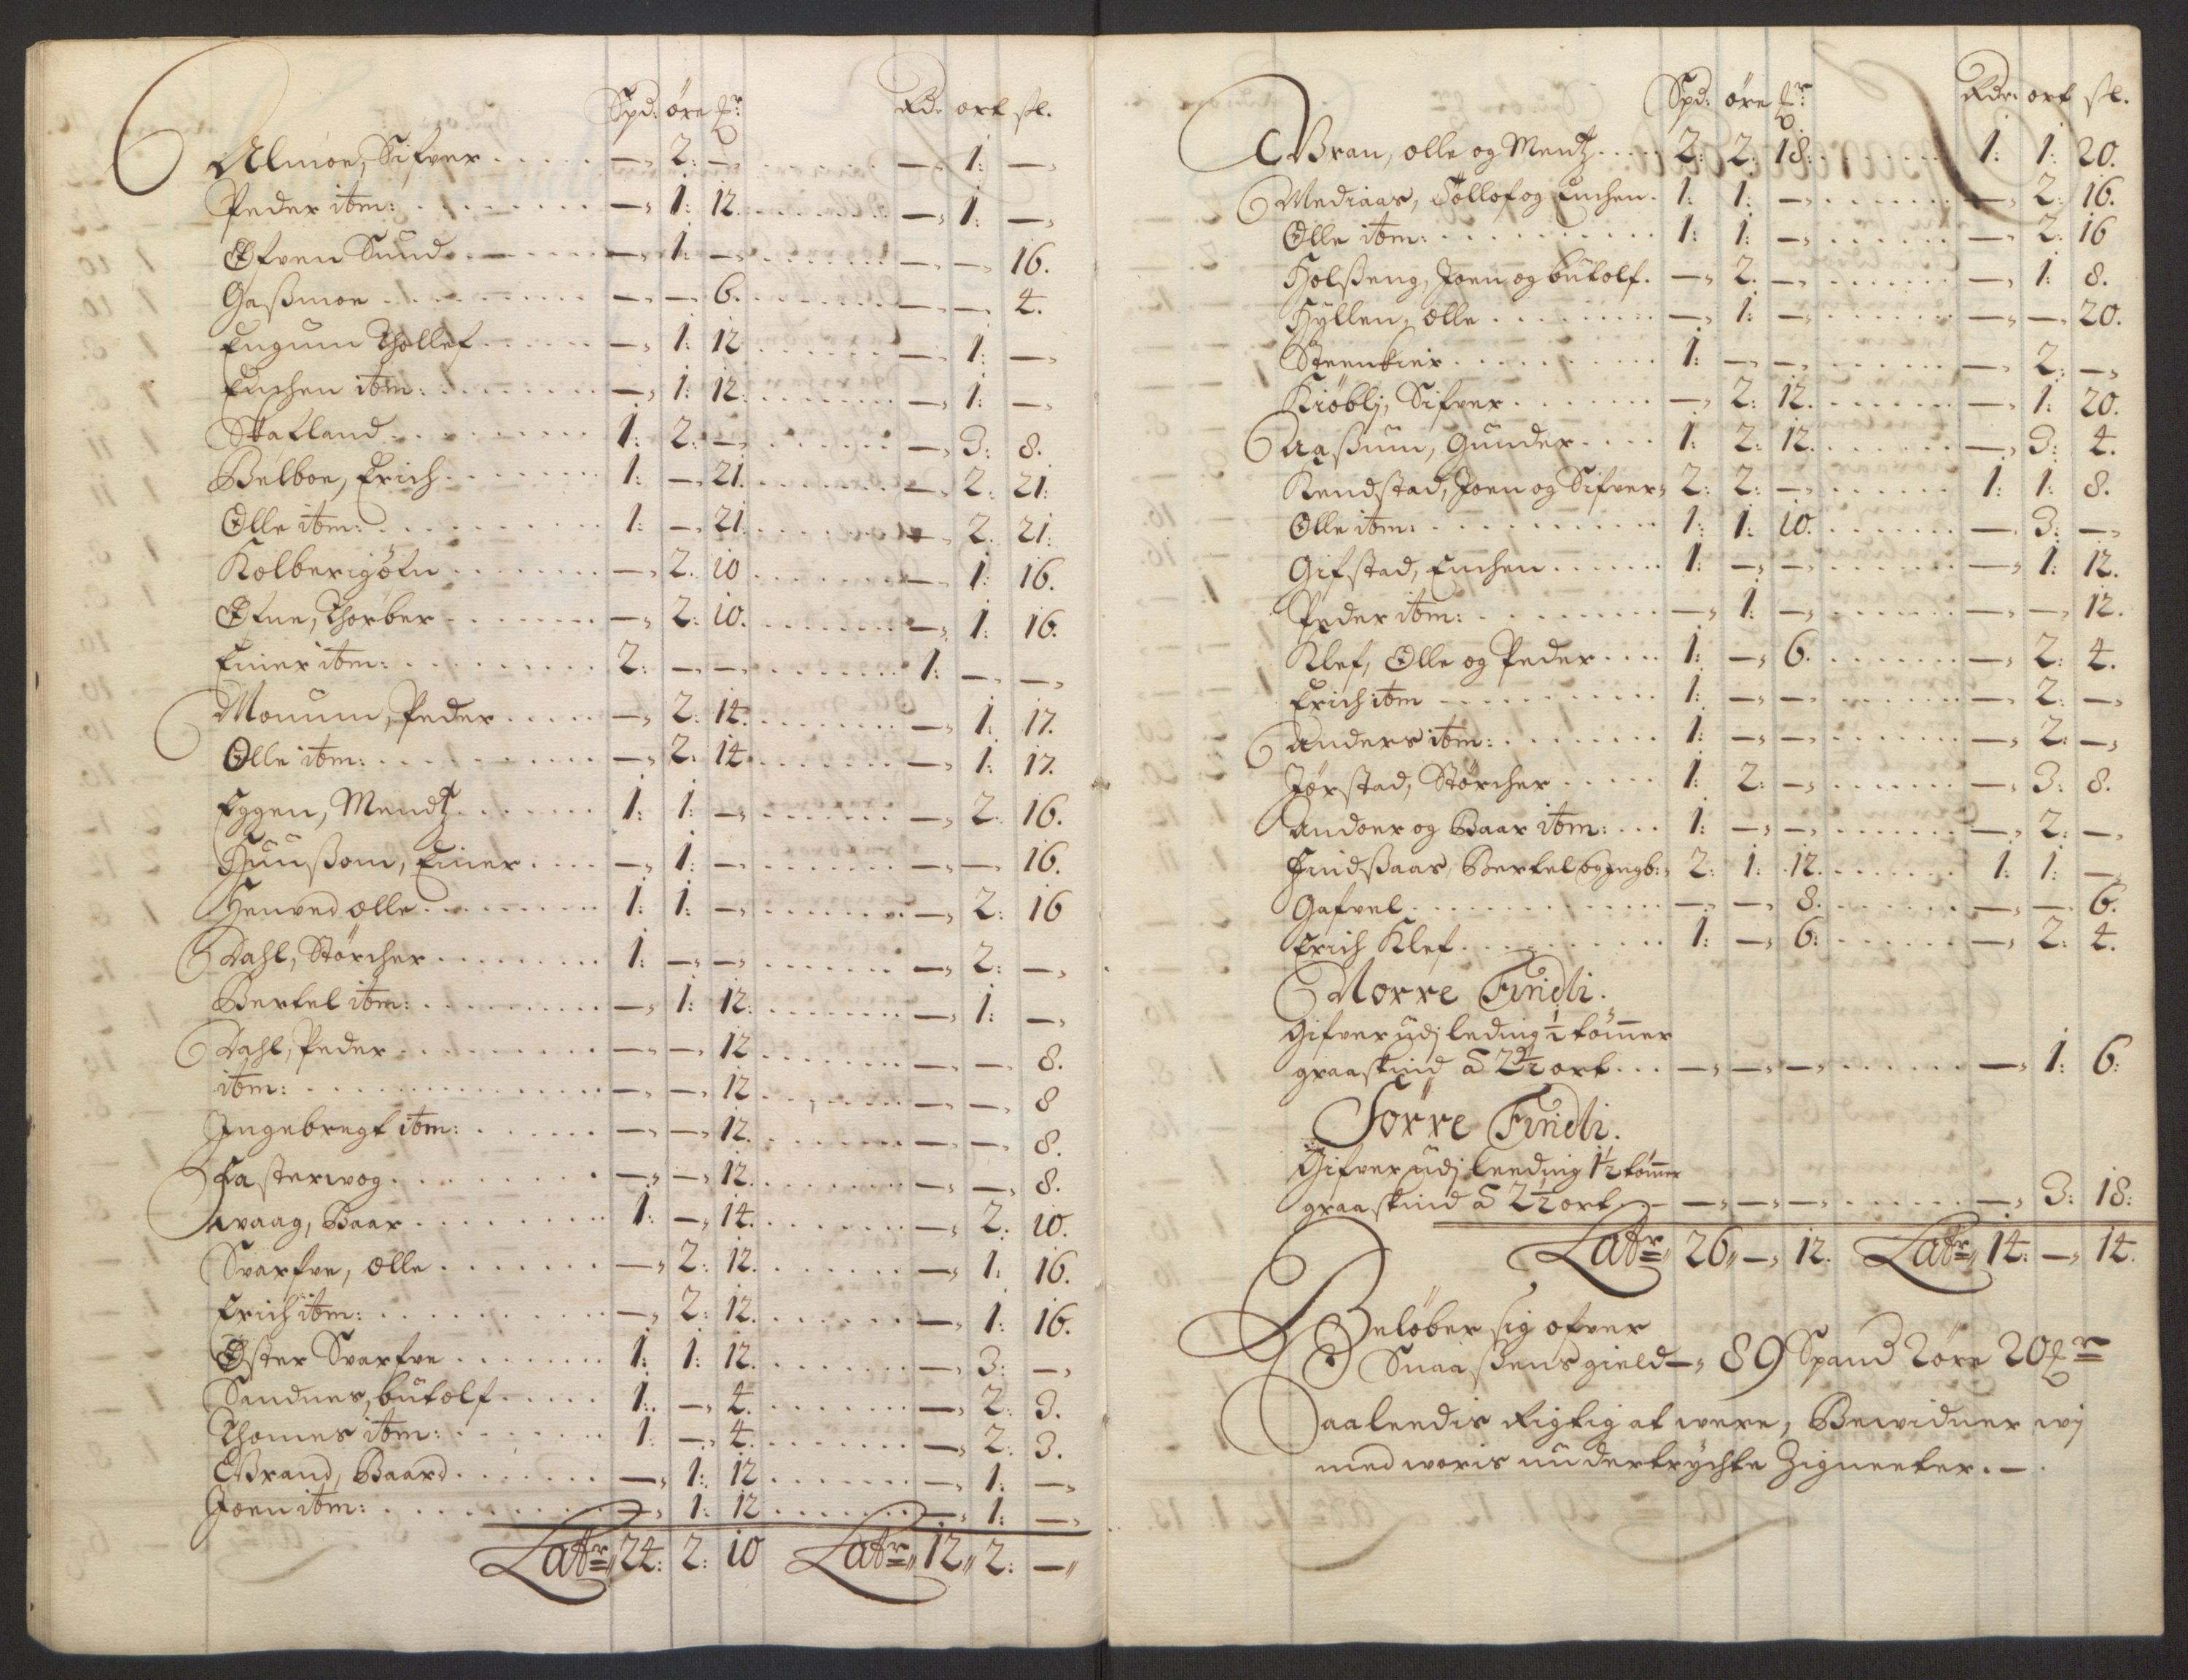 Spd: öre
Rdr ort sk.
Almoe, Sifver ..... —, 2: —, ..... —, 1: —,
Peder itm: ..... —, 1: 12. ..... —, 1: —,
Øfven Sund ..... —, 1: —, ..... —, —, 16.
Gaßmoe ..... —, —, 6. ..... —, —, 4.
Eugum Thollef ..... —, 1: 12 ..... —, 1: —,
Enchen itm: ..... —, 1: 12. ..... —, 1: —,
Statland ..... 1: 2: —, ..... —, 3: 8.
Belboe, Erich ..... 1: —, 21. ..... —, 2: 21:
Olle itm: ..... 1: —, 21. ..... —, 2. 21:
Kolberigötn ..... —, 2: 10 ..... —, 1: 16.
Øfne, Thorber ..... —, 2: 10. ..... —, 1: 16.
Einer itm: ..... 2: —, —, ..... 1: —, —,
Monum, Peder ..... —, 2: 14. ..... —, 1: 17.
Olle itm: ..... —, 2: 14. ..... —, 1: 17.
Eggen, Mendtz ..... 1: 1: —, ..... —, 2: 16.
Huußom, Einer .... —, 1: —, ..... —, —, 16.
Henved olle ..... 1: 1: —, ..... —, 2: 16
Dahl, Störcher ..... 1: —, —, ..... —, 2: —,
Bertel itm: ..... —, 1: 12: ..... —, 1: —,
Dahl, Peder ..... —, —, 12 ..... —, —, 8.
itm: ..... —, —, 12 ..... —, —, 8
Ingebregt itm: ..... —, —, 12. ..... —, —, 8.
Fasterwog ..... —, —, 12. ..... —, —, 8.
Awaag, Baar ..... 1: —, 14. ..... —, 2: 10.
Svarfve, olle ..... —, 2: 12. ..... —, 1: 16.
Erich itm: ..... —, 2: 12. ..... —, 1: 16.
Øster Svarfve ..... 1: 1: 12. ..... —, 3: —,
Sandnes, butolf ..... 1: —, 4. ..... —, 2: 3.
Thomes itm: ..... 1: —, 4. ..... —, 2: 3.
Brand, Baard ..... —, 1: 12 ..... —, 1: —,
Joen itm: ..... —, 1: 12 ..... —, 1: —,
Latr 24: 2: 10 Latr 12,, 2: —,,
Spd: öre
Rdr: ort sk.
Vran, olle og Mentz ..... 2: 2: 18: ..... 1: 1: 20.
Mediaas, Tollof og Enchen . 1: 1: —, ..... —, 2: 16.
Olle itm: ..... 1: 1: —, ..... —, 2: 16
Holßeng, Joen og butolf . —, 2. —, ..... —, 1: 8.
Hyllen, olle ..... —, 1: —, ..... —, —, 20.
Steenkier ..... 1: —, —, ..... —, 2: —,
Kiöblj, Sifver ..... —, 2: 12. ..... —, 1: 20.
Aaßum, Gunder .... 1: 2: 12. ..... —, 3: 4.
Kendstad, Joen og Sifver, 2: 2: —, ..... 1: 1: 8.
Olle itm: ..... 1: 1: 10. ..... —, 3: —,
Gifstad, Enchen ..... 1: —, —, ..... —, 1: 12.
Peder itm: ..... —, 1: —, ..... —, —, 12.
Klef, Olle og Peder .... 1: —, 6. ..... —, 2: 4.
Erich itm ..... 1: —, —, ..... —, 2: —,
Anders itm: ..... 1: —, —, ..... —, 2: —,
Jörstad, Störcher ..... 1: 2: —, ..... —, 3: 8.
Andoer og Baar itm: ... 1: —, —, ..... —, 2: —,
Findßaas, Bertel og Ingb: 2: 1: 12. ..... 1: 1: —,
Gafvel ..... —, —, 8. ..... —, —, 6.
Erich Klef ..... 1: —, 6: ..... —, 2: 4.
Norre Findli.
Gifver udj leding ½ tömmer
graaskind a 2½ ort ... —, —, —, ..... —, 1: 6:
Sörre Findli.
Gifver udj leeding 1½ tömmer
graaskind a 2½ ort . —, —, —, ..... —, 3: 18:
Latr 26,, —, 12. Latr 14: —, 14.
Belöber sig ofver
Snaaßens gield —, 89 Spand 2 öre 20
Saaleedis Rigtig at were, Bewidner wj
med woris undertrychte Zigneeter. —